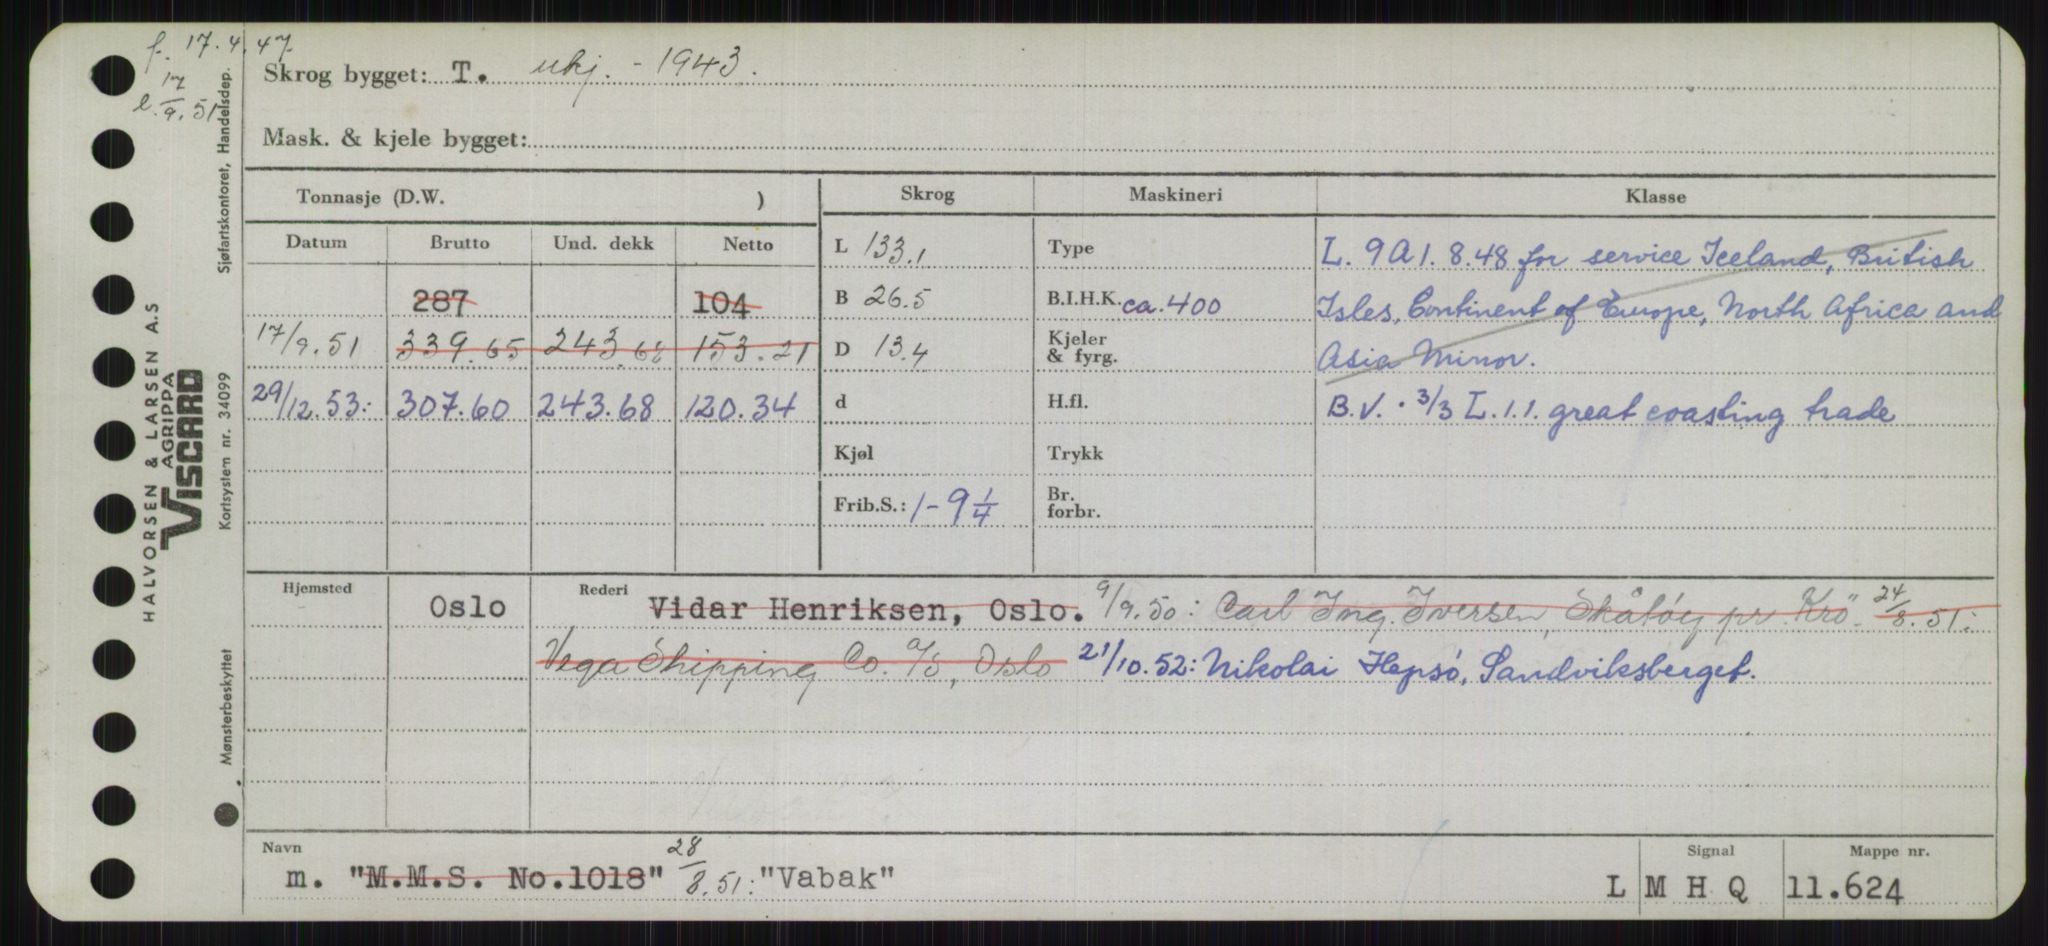 f. 17.4.47
17
l. 9. 51
Skrog bygget: T. ukj. - 1943.
Mask. & kjele bygget:
Tonnasje (D.W. )
Skrog Maskineri Klasse
Datum Brutto Und. dekk Netto
287 104
17/9.51 339.65 243.68 153.21
29/12.53: 307.60 243.68 120.34
L 133.1
B 26.5
D 13.4
d
Kjøl
Frib.S.: 1-9 1/4
Type
B.I.H.K. ca. 400
Kjeler
& fyrg.
H.fl.
Trykk
Br.
forbr.
L. 9A1. 8.48 for service Iceland, British
Isles, Continent of Europe, North Africa and
Asia Minor.
B.V. . 3/3 L.1.1. great coasting trade
Hjemsted Rederi
Oslo Vidar Henriksen, Oslo. 9/9.50: Carl Ing. Iversen, Skåtøy pr. Krö. 24/8.51:
Vega Shipping Co. A/S, Oslo 21/10.52: Nikolai Hepsø, Sandviksberget.
Navn Signal Mappe nr.
m. "M.M.S. No.1018" 28/8.51: "Vabak" L M H Q 11.624
HALVORSEN & LARSEN A.S
AGRIPPA
VISCARD
Mønsterbeskyttet Kortsystem nr. 34099 Sjøfartskontoret, Handelsdep.